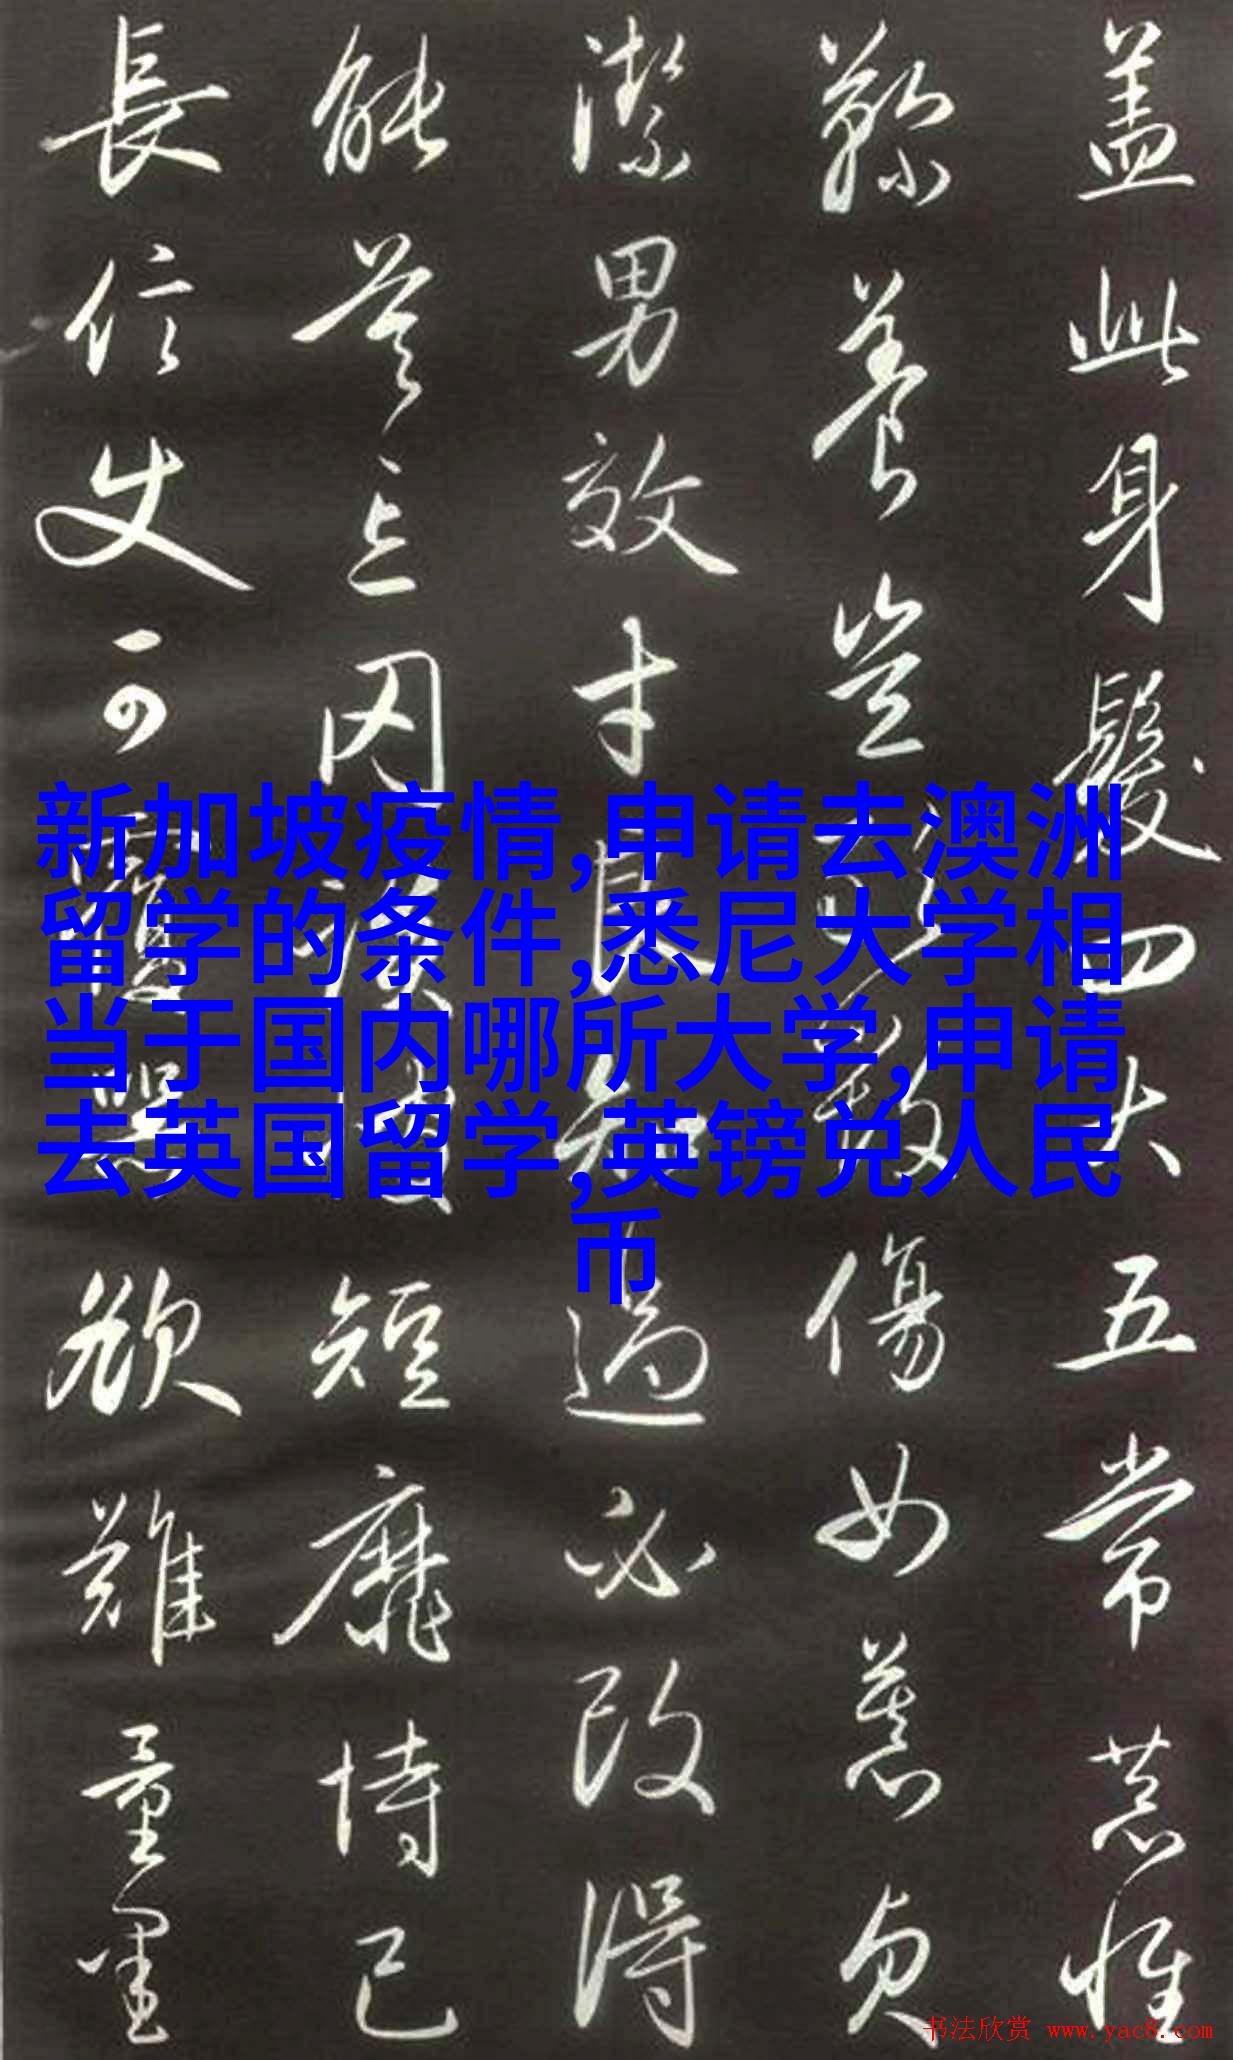 盖此身髮四大五常恭惟
鞠養豈敢毀傷女慕貞
潔男效才良知過必改得
能莫忘罔談彼短靡恃己
長信使可覆器欲難量墨
新加坡疫情,申请去澳洲
留学的条件,悉尼大学相
当于国内哪所大学,申请
去英国留学,英镑兑人民
币
书法欣赏 www.yac8.com